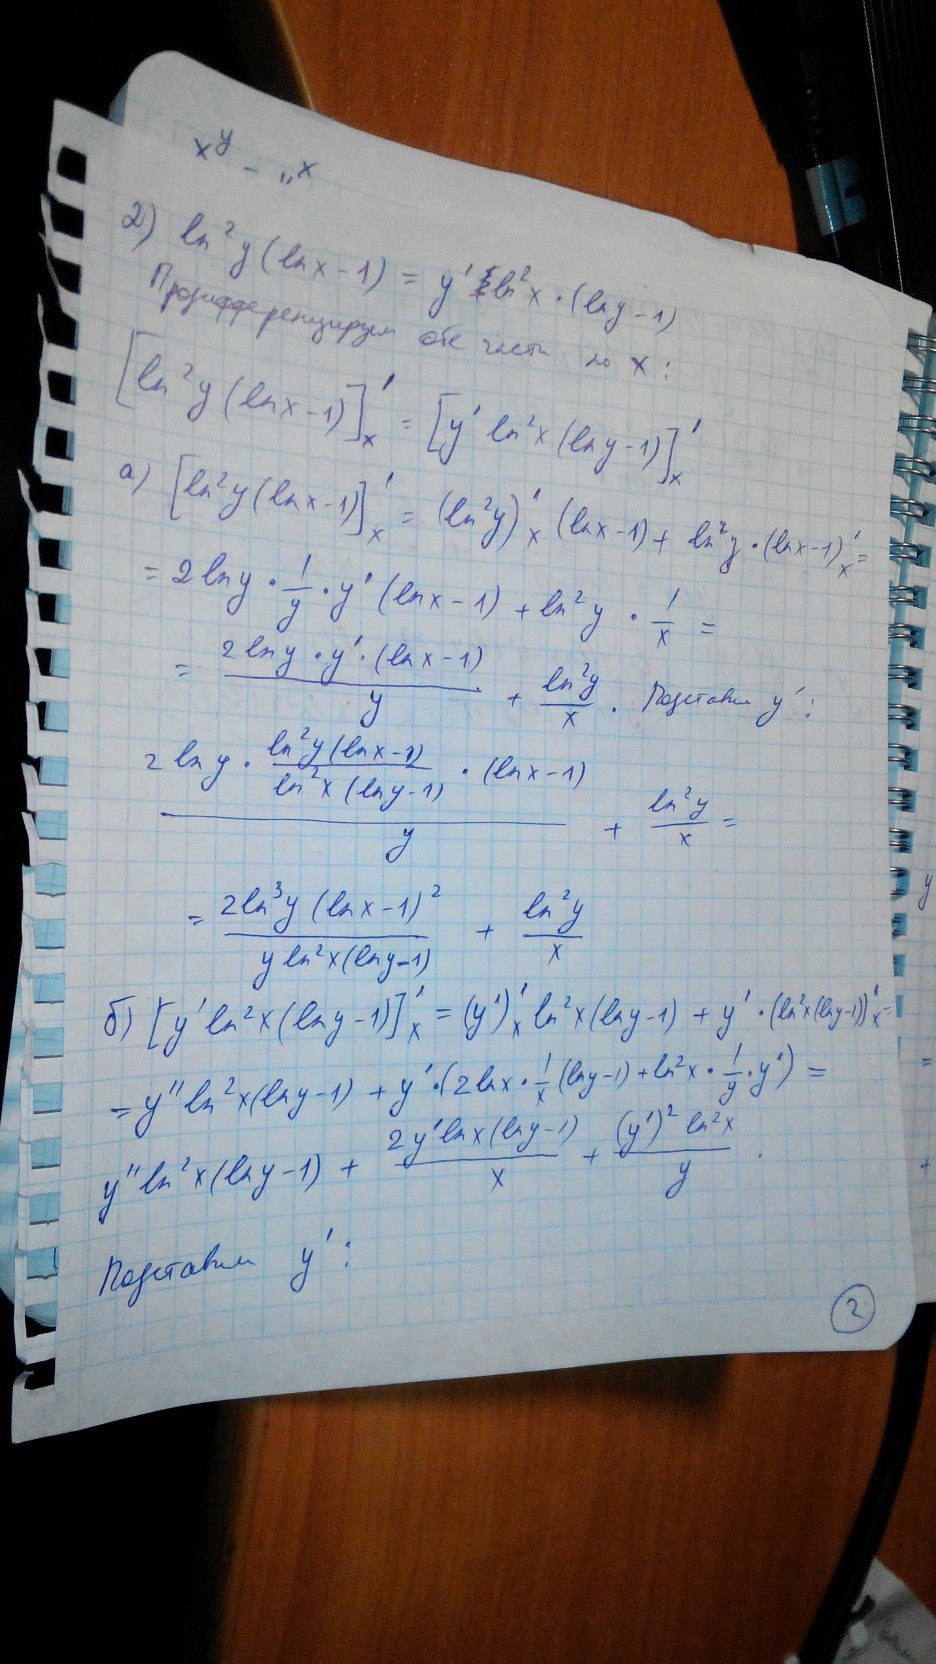 x^y - „x
2) ln²y (lnx-1) = y' ln²x · (lny-1)
Продифференцируем обе части по x:
[ln²y (lnx-1)]'ₓ = [y' ln²x (lny-1)]'ₓ
а) [ln²y (lnx-1)]'ₓ = (ln²y)'ₓ (lnx-1) + ln²y · (lnx-1)'ₓ =
= 2lny · 1/y · y' (lnx-1) + ln²y · 1/x =
= 2lny · y' · (lnx-1) / y + ln²y / x . Подставим y':
2lny · ln²y(lnx-1) / ln²x(lny-1) · (lnx-1) / y + ln²y / x =
= 2ln³y (lnx-1)² / y ln²x(lny-1) + ln²y / x
б) [y' ln²x(lny-1)]'ₓ = (y')'ₓ ln²x(lny-1) + y' · (ln²x(lny-1))'ₓ =
= y'' ln²x(lny-1) + y' · (2lnx · 1/x (lny-1) + ln²x · 1/y · y') =
y'' ln²x(lny-1) + 2y' lnx(lny-1) / x + (y')² ln²x / y .
Подставим y':
2
y
=
+